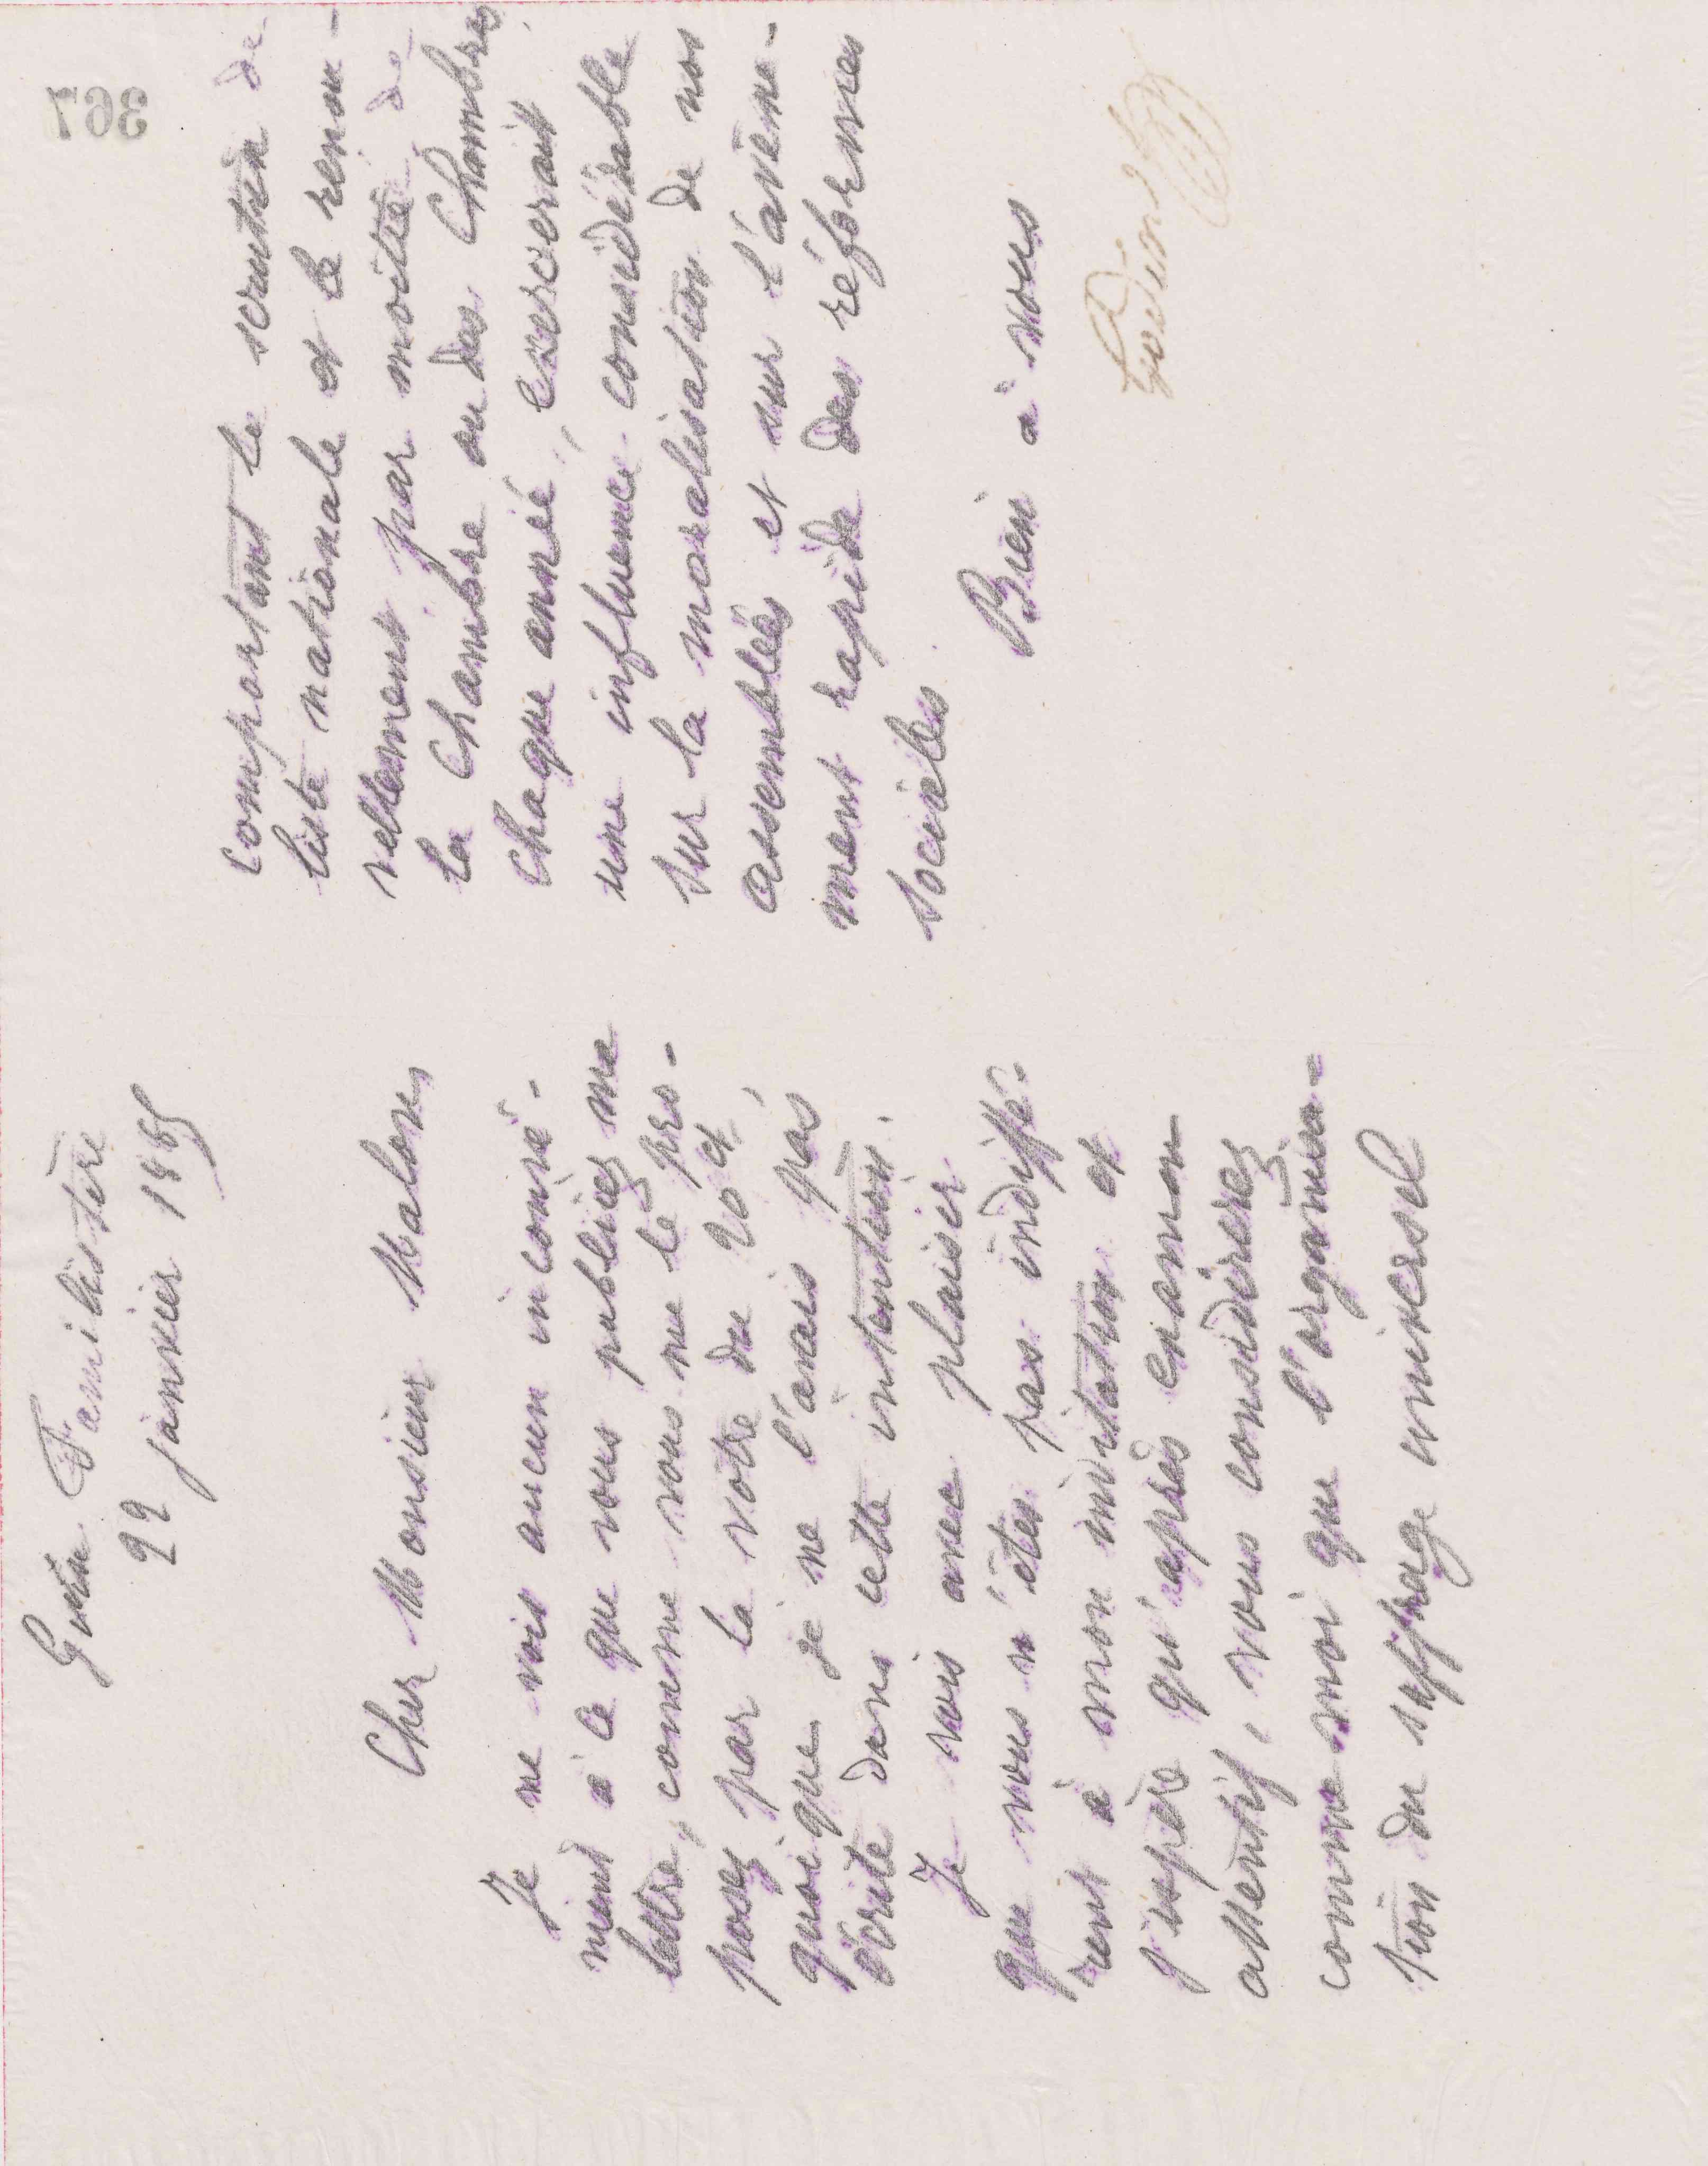 Guise Familistère
22 janvier 1885
Cher Monsieur Malon,
Je ne vois aucun inconvé-
nient à ce que vous publiiez ma
lettre, comme vous me le pro-
posez par la vôtre du 20 ct,
quoique je ne l'avais pas
écrite dans cette intention.
Je vois avec plaisir
que vous n'êtes pas indiffé-
rent à mon invitation et
j'espère qu'après examen
attentif, vous considérerez
comme moi que l'organisa-
tion du suffrage universel
comportant le scrutin de
liste nationale et le renou-
vellement par moitié de
la Chambre ou des Chambres
chaque année, exercerait
une influence considérable
sur la moralisation de nos
assemblées et sur l'avène-
ment rapide des réformes
sociales.
Bien à vous
Godin
367